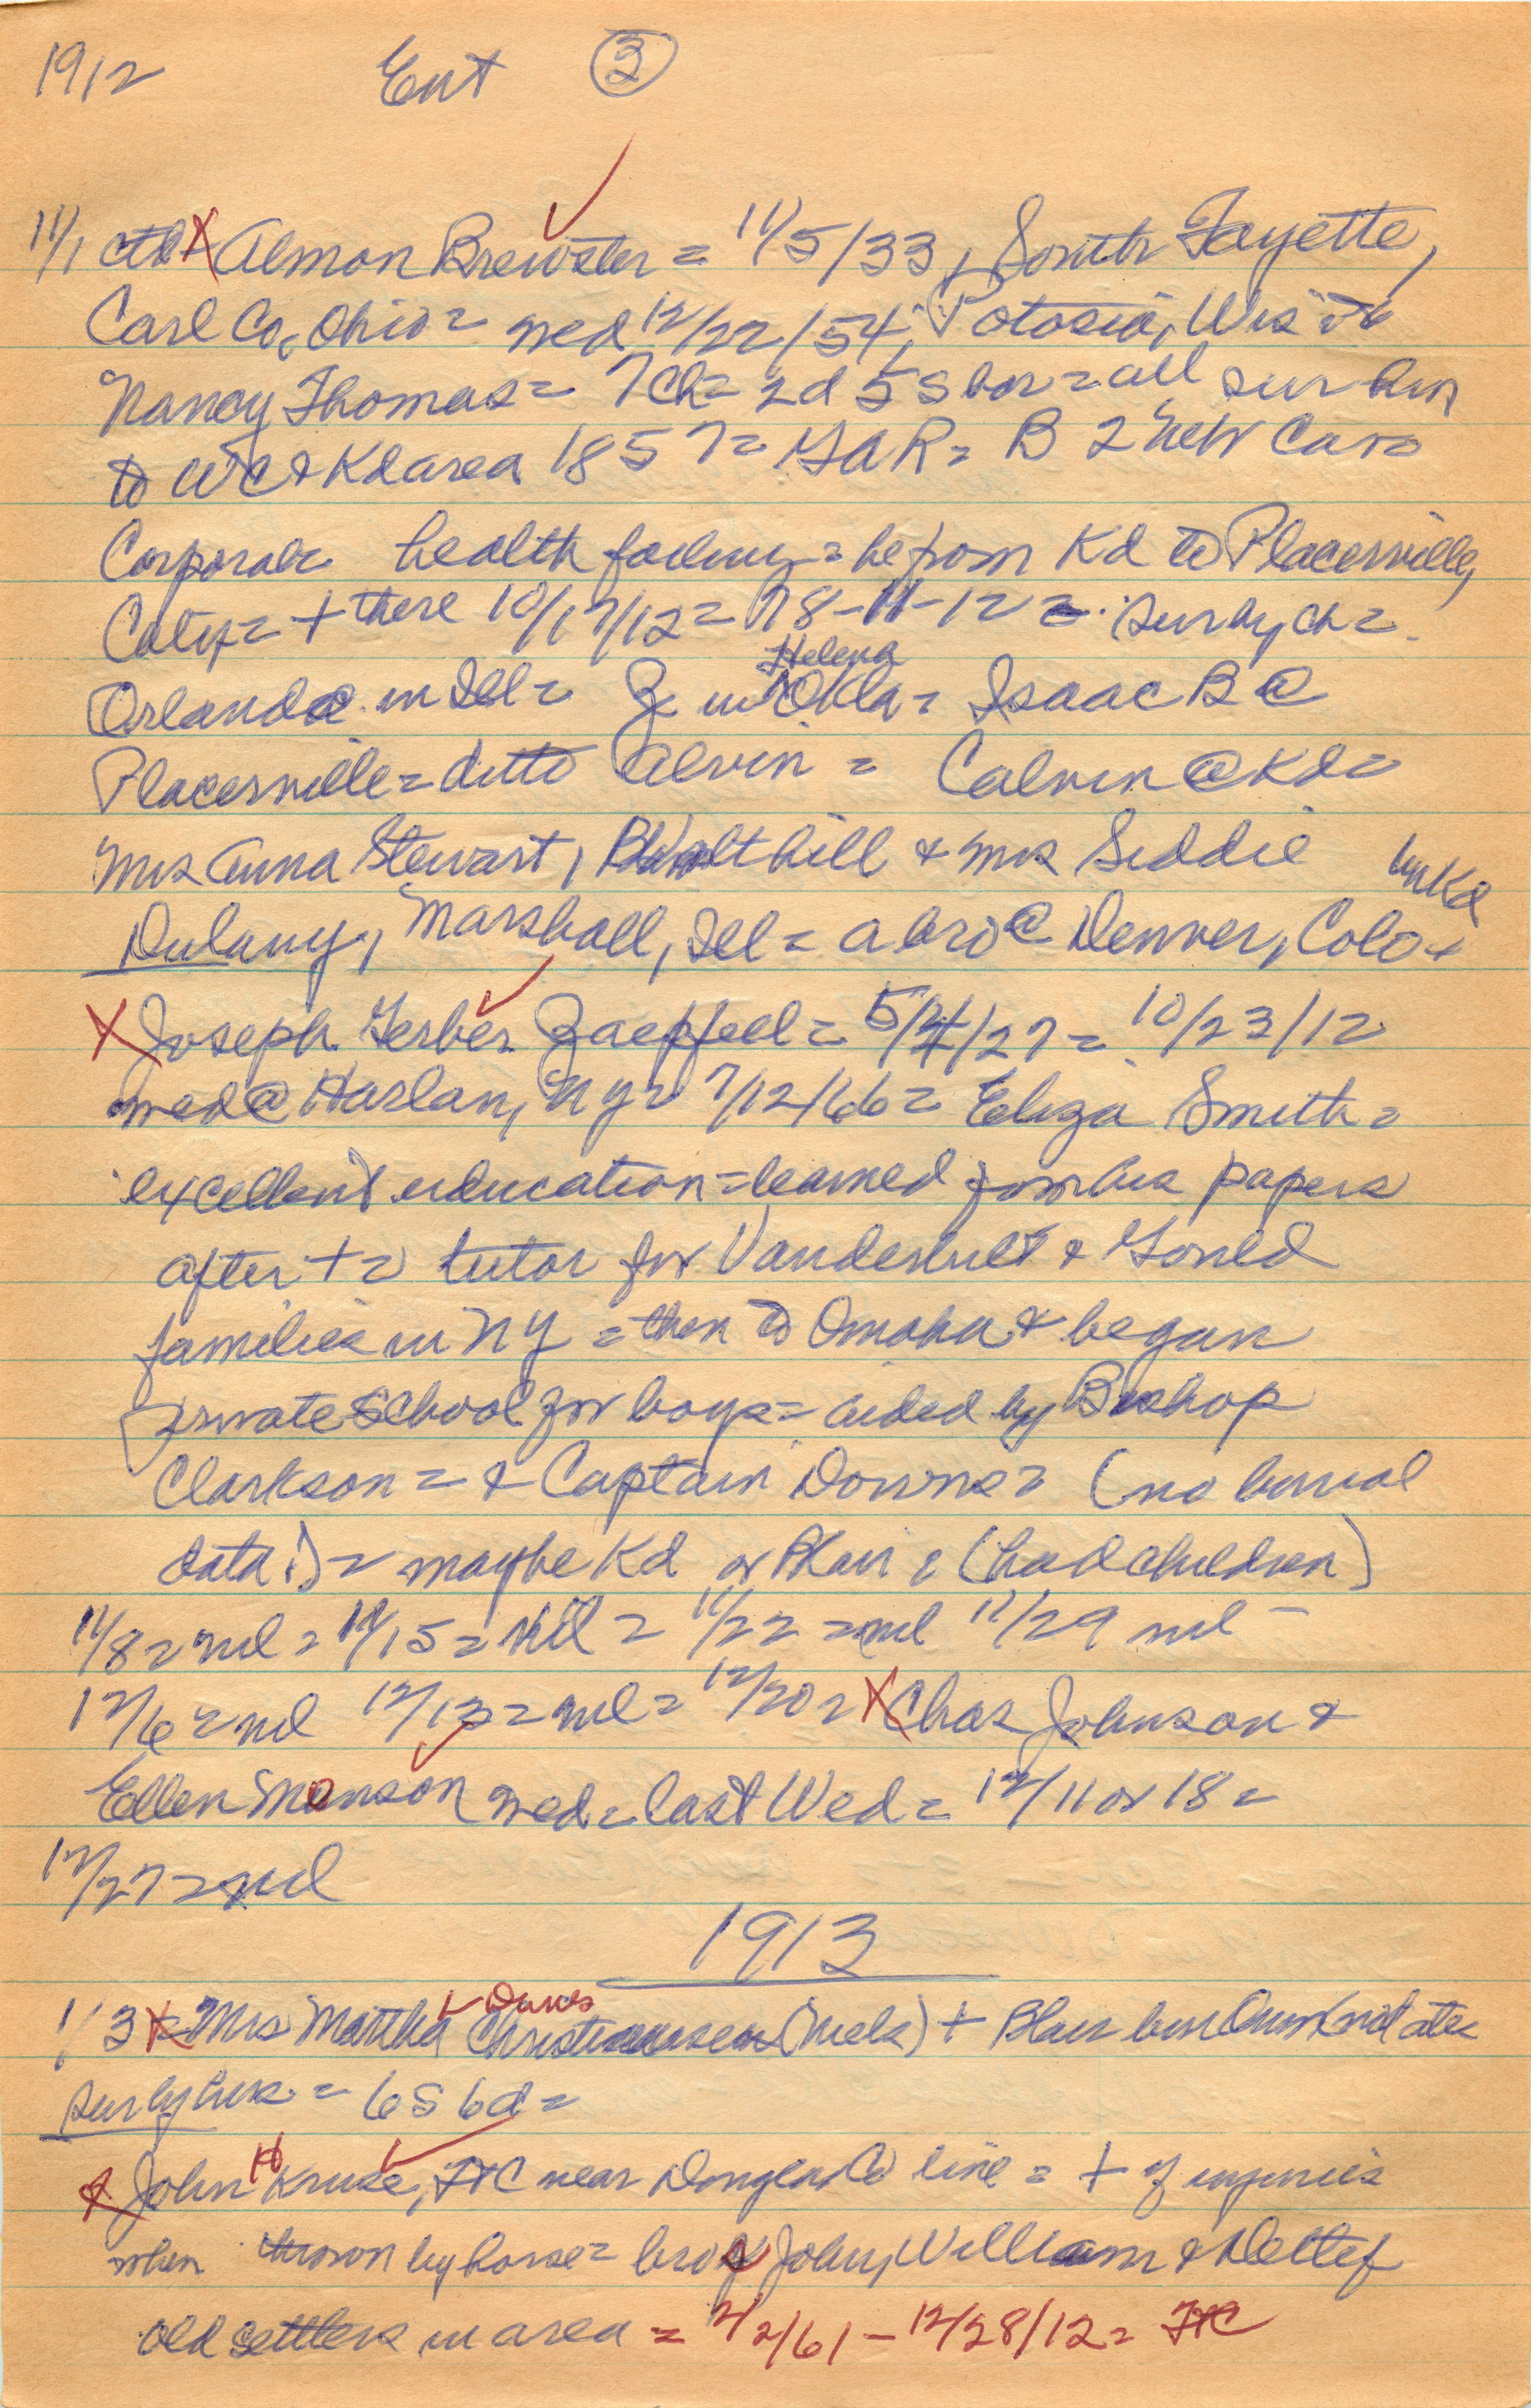 1912 Ent 3
11/1 ctl X Almon Brewster = 11/5/33, South Fayette,
Carl Co, Ohio = wed 12/22/54, Potosia, Wis to
Nancy Thomas = 7 ch = 2d 5s bor = all sur him
to WC & Kd area 1857 = GAR = B 2 Neb Cav =
Corporal health failing = he from Kd to Placerville,
Calif = + there 10/17/12 = 78-11-12 = sur by ch =
Orland @ in Ill = Z in Helena Okla = Isaac B @
Placerville = ditto Alvin = Calvin @ Kd =
Mrs Anna Stewart, Walthill & Mrs Siddie
Dulany, Marshall, Ill = a bro @ Denver, Colo = bur Kd
X Joseph Gerber Zaepffel = 5/4/27 = 10/23/12
wed @ Harlan, NY = 7/12/66 = Eliza Smith =
excellent education = learned from his papers
after + = tutor for Vanderbilt & Gould
families in NY = then to Omaha & began
private school for boys = aided by Bishop
Clarkson = & Captain Downs = (no burial
data) = maybe Kd or Blair = (had children)
11/8 = nil = 11/15 = nil = 11/22 = nil 11/29 nil -
12/6 = nil 12/13 = nil = 12/20 = X Chas Johnson &
Ellen Monson wed = last Wed = 12/11 or 18 =
12/27 = nil
1913
1/3 X Mrs Martha Christiansen (Nels) + Blair bur (no dates
sur by hus = 6s 6d =
X John H Kruse, FtC near Douglas Co line = + of injuries
when thrown by horse = bro of John, William & Detlef
old settlers in area = 2/2/61 - 12/28/12 = FtC